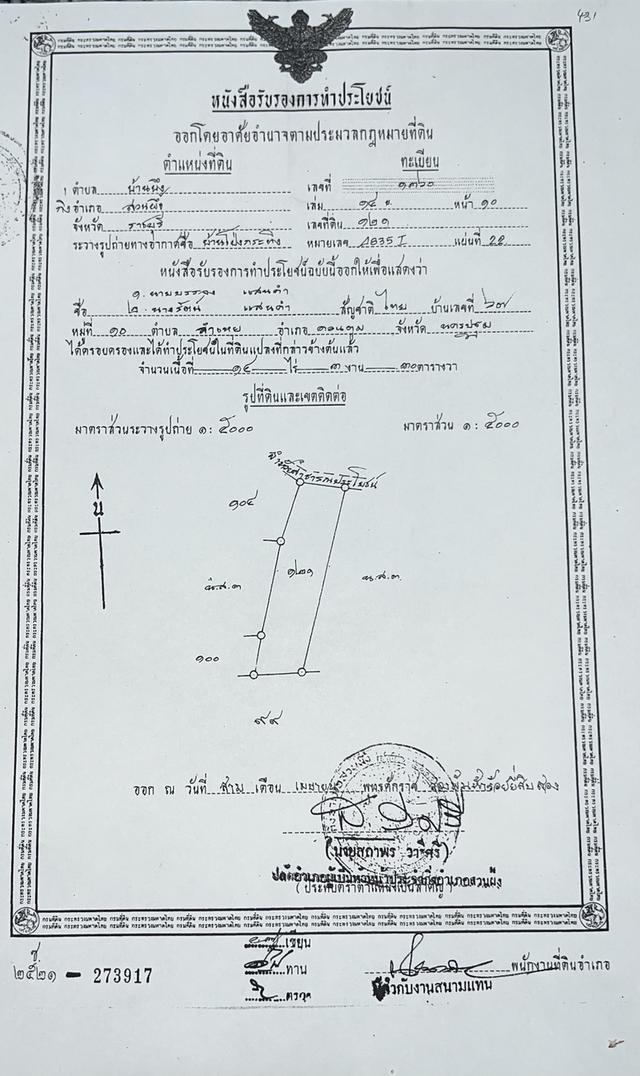 431
หนังสือรับรองการทำประโยชน์
ออกโดยอาศัยอำนาจตามประมวลกฎหมายที่ดิน
ตำแหน่งที่ดิน ทะเบียน
ตำบล บ้านบึง เลขที่ ๑๓๖๐
กิ่งอำเภอ สวนผึ้ง เล่ม ๑๔ หน้า ๑๐
จังหวัด ราชบุรี เลขที่ดิน ๑๒๑
ระวางรูปถ่ายทางอากาศชื่อ บ้านโป่งกระทิง หมายเลข 4835 I แผ่นที่ 22
หนังสือรับรองการทำประโยชน์ฉบับนี้ออกให้เพื่อแสดงว่า
๑. นาย แสนคำ
ชื่อ ๒. นางรัตน์ แสนคำ สัญชาติ ไทย บ้านเลขที่ ๖๗
หมู่ที่ ๑๐ ตำบล อำเภอ ดอนตูม จังหวัด นครปฐม
ได้ครอบครองและได้ทำประโยชน์ในที่ดินแปลงที่กล่าวข้างต้นแล้ว
จำนวนเนื้อที่ ๑๔ ไร่ ๓ งาน ๓๐ ตารางวา
รูปที่ดินและเขตติดต่อ
มาตราส่วนระวางรูปถ่าย ๑: ๕๐๐๐ มาตราส่วน ๑: ๕๐๐๐
สาธารณประโยชน์
๑๐๔
น
๑๒๑
น.ส.๓ น.ส.๓
๑๐๐
๙๙
ออก ณ วันที่ สาม เดือน เมษายน พุทธศักราช สองพันห้าร้อยยี่สิบสอง
(นายสุภาพร วารีศรี)
(ประทับตราตำแหน่งเป็นสำคัญ)
เขียน
ทาน พนักงานที่ดินอำเภอ
ตรวจ ผู้กำกับงานสนามแทน
ช.
๒๕๒๑ - 273917